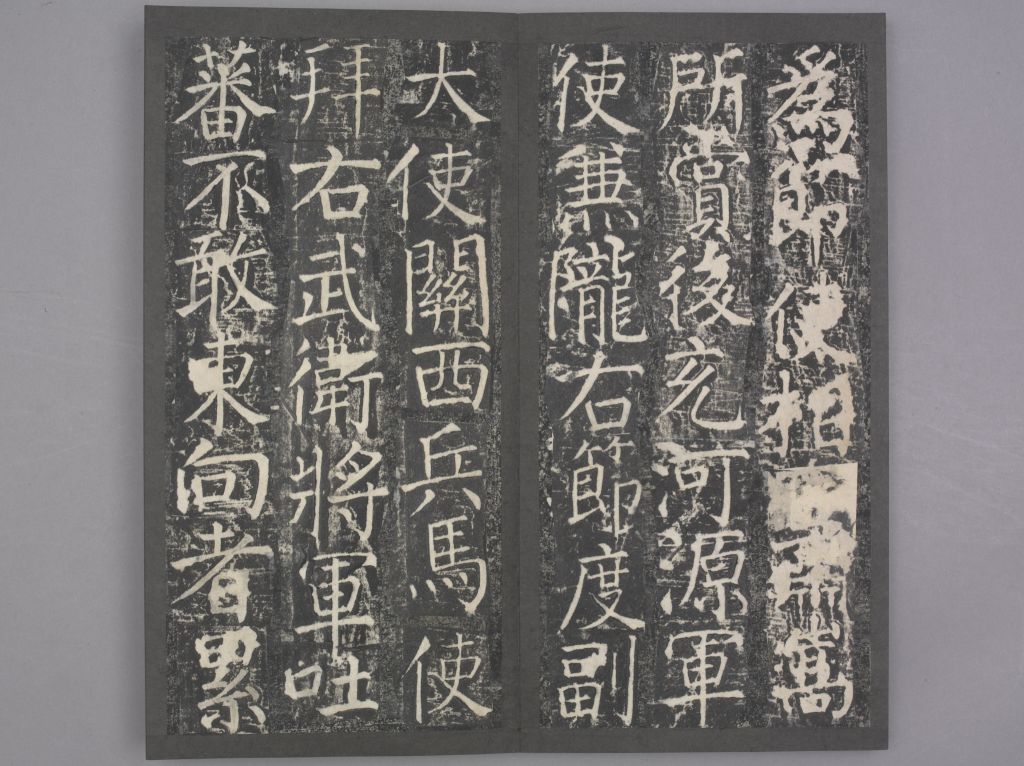 為節使相▯▯萬
所賞後充河源軍
使兼隴右節度副
大使關西兵馬使
拜右武衛將軍吐
蕃不敢東向者累